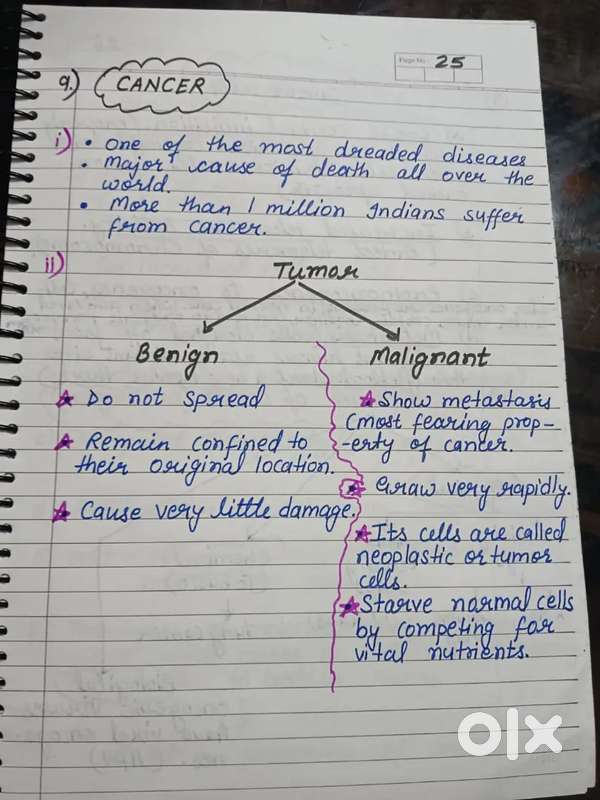 Page No. 25
9.) CANCER
i) • One of the most dreaded diseases
• Major cause of death all over the
world.
• More than 1 million Indians suffer
from cancer.
ii) Tumor
Benign
★ Do not spread
★ Remain confined to
their original location.
★ Cause very little damage.
Malignant
★ Show metastasis
(most fearing prop-
-erty of cancer.
★ Graw very rapidly.
★ Its cells are called
neoplastic or tumor
cells.
★ Starve normal cells
by competing for
vital nutrients.
olx